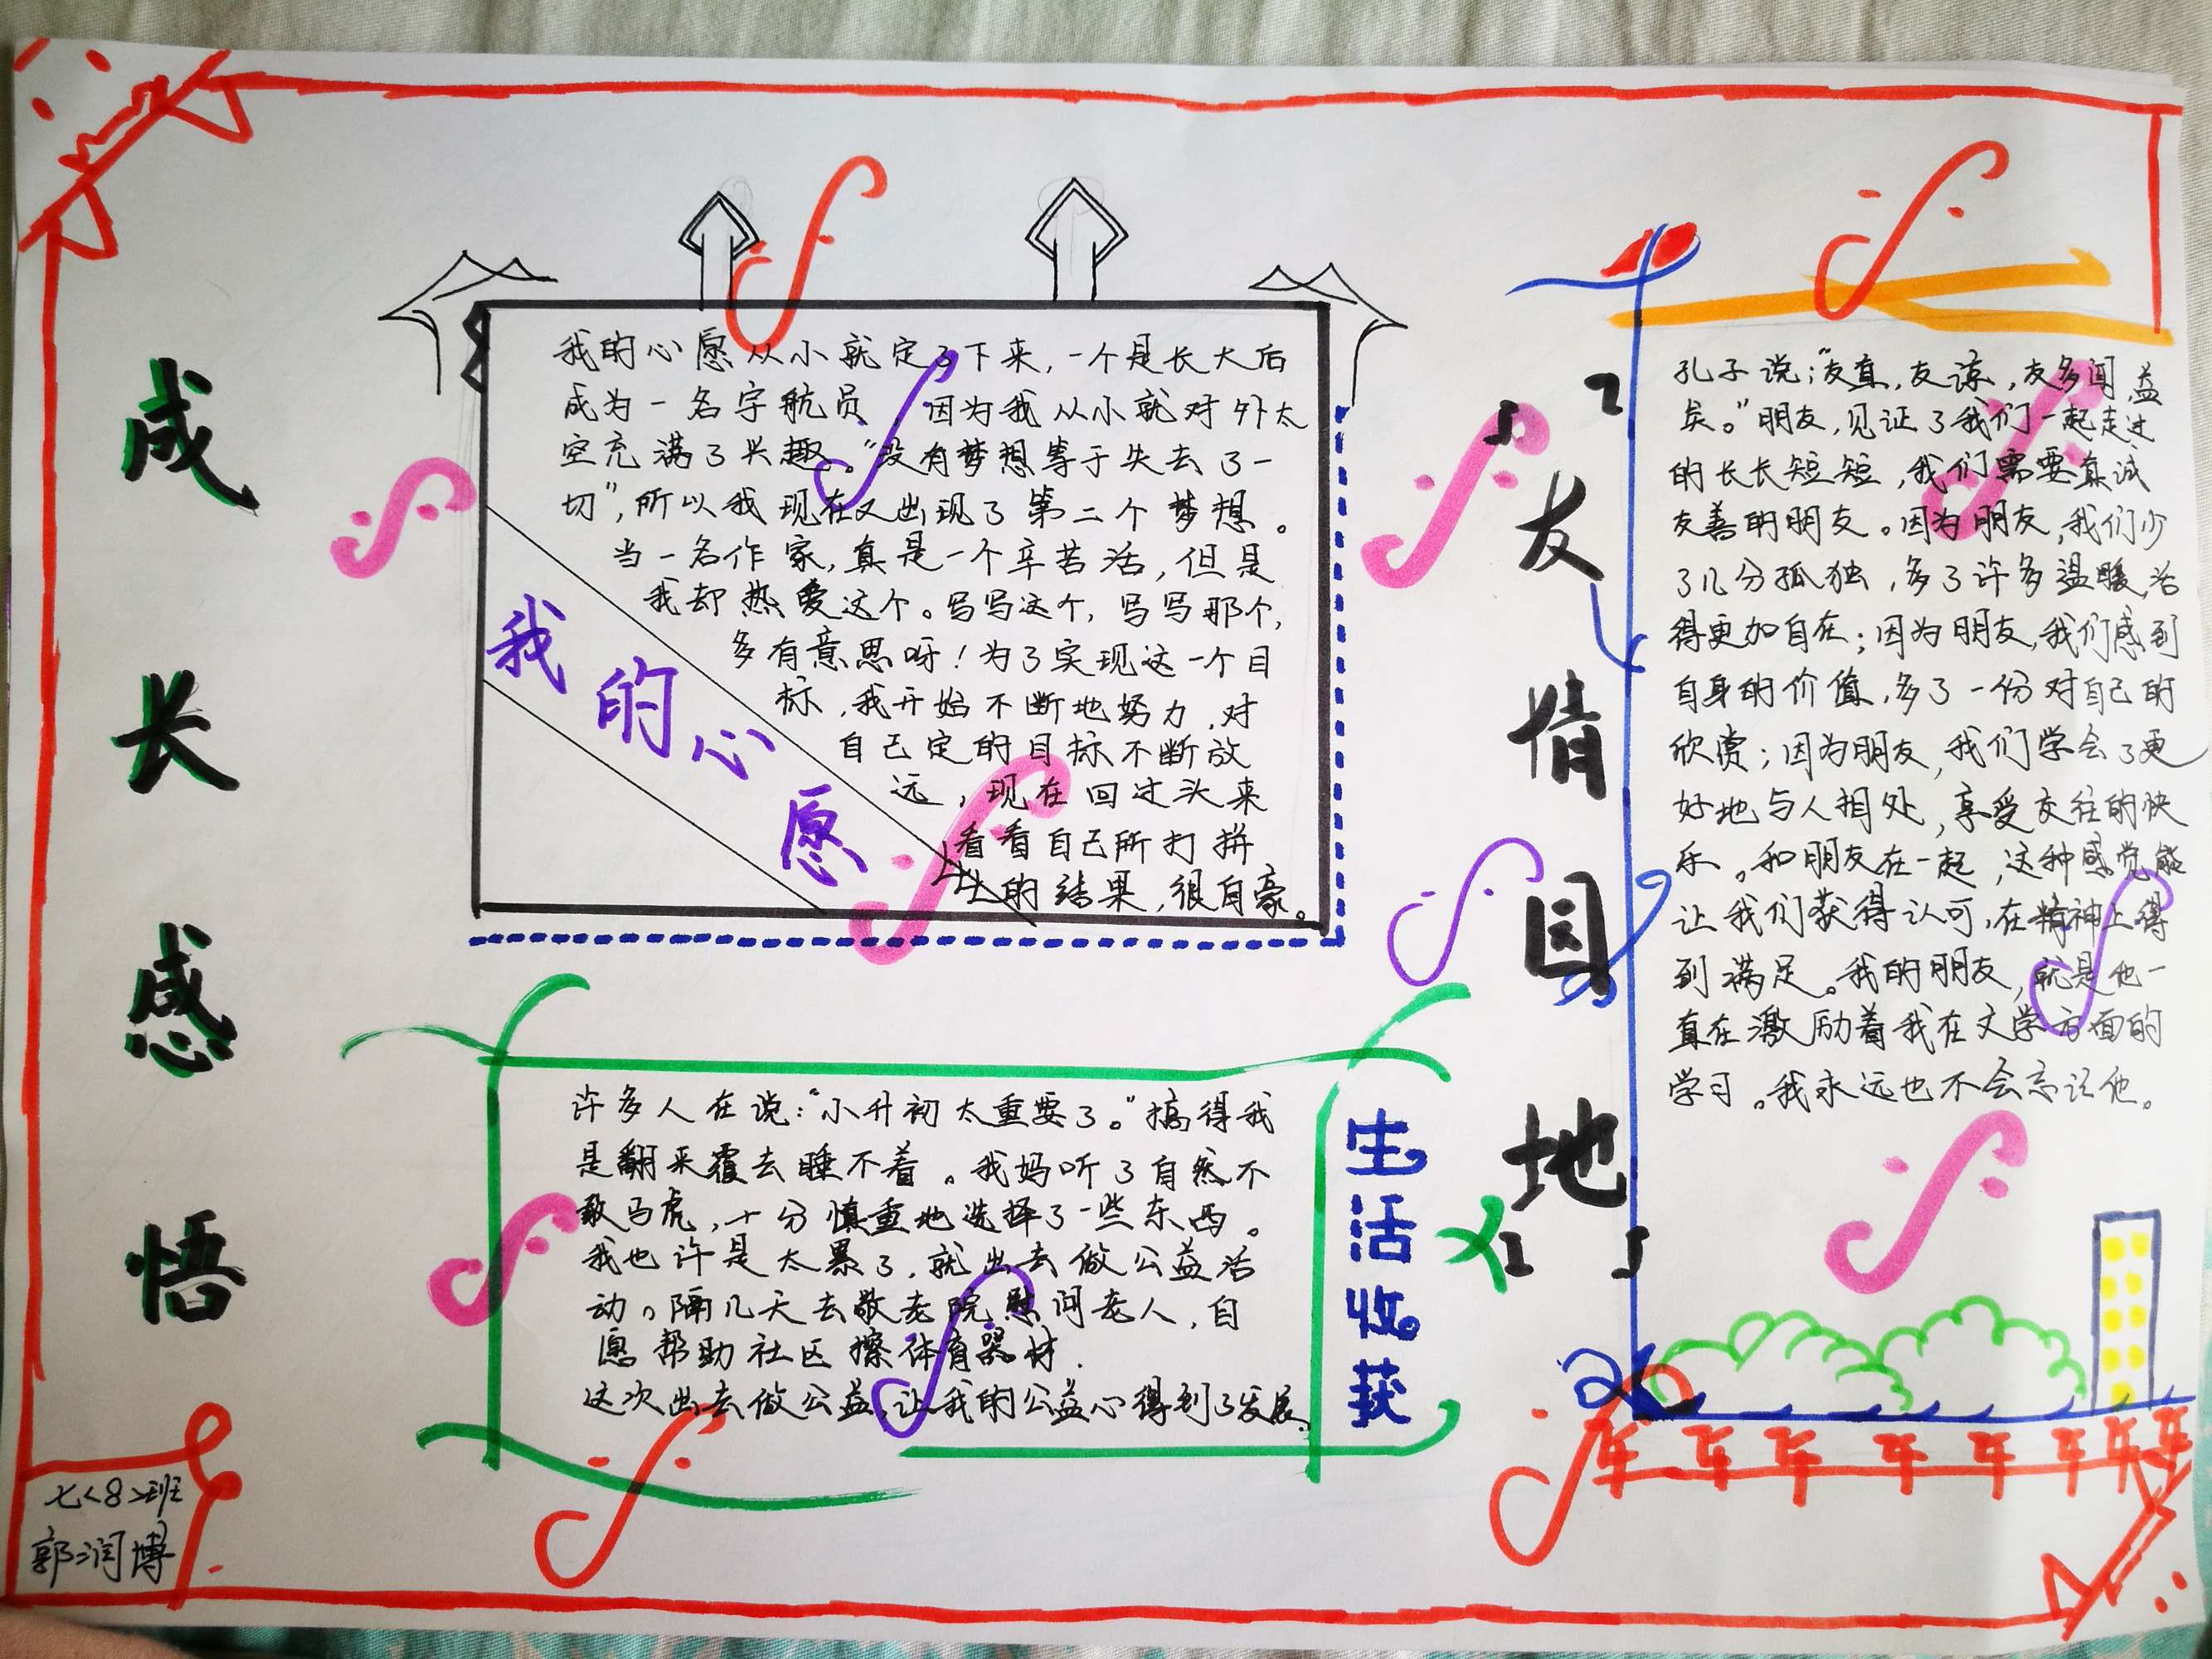 成长感悟
我的心愿从小就定了下来，一个是长大后
成为一名宇航员，因为我从小就对外太
空充满了兴趣。“没有梦想等于失去了一
切”，所以我现在又出现了第二个梦想。
当一名作家，真是一个辛苦活，但是
我却热爱这个。写写这个，写写那个，
多有意思呀！为了实现这一个目
标，我开始不断地努力，对
自己定的目标不断放
远，现在回过头来
看看自己所打拼
出的结果，很自豪。
我的心愿
许多人在说：“小升初太重要了。”搞得我
是翻来覆去睡不着。我妈听了自然不
敢马虎，十分慎重地选择了一些东西。
我也许是太累了，就出去做公益活
动。隔几天去敬老院慰问老人，自
愿帮助社区擦体育器材.
这次出去做公益，让我的公益心得到了发展。
生活收获
友情园地
孔子说：“友直，友谅，友多闻，益
矣。”朋友，见证了我们一起走过
的长长短短，我们需要真诚
友善的朋友。因为朋友，我们少
了几分孤独，多了许多温暖，活
得更加自在；因为朋友，我们感到
自身的价值，多了一份对自己的
欣赏；因为朋友，我们学会了更
好地与人相处，享受交往的快
乐。和朋友在一起，这种感觉能
让我们获得认可，在精神上得
到满足。我的朋友，就是他一
直在激励着我在文学方面的
学习。我永远也不会忘记他。
七<8>班
郭润博